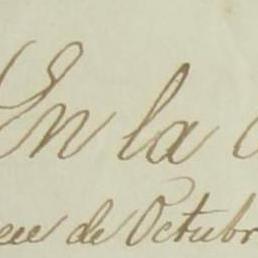 En la
de Octubr